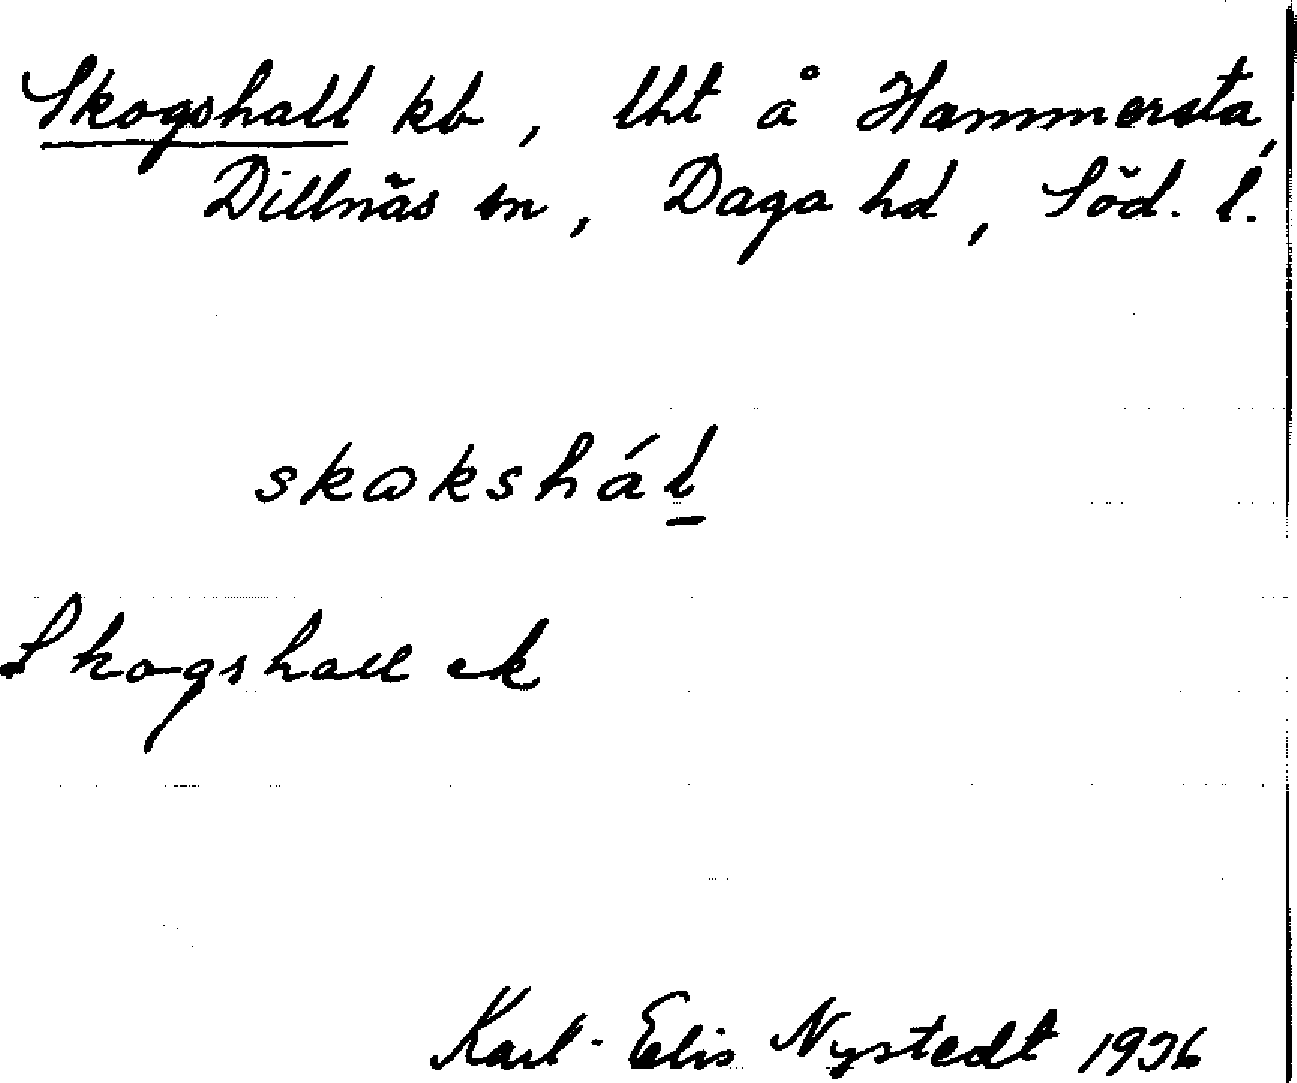 Skogshall kb, lht å Hammersta,
Dillnäs sn, Daga hd, Söd. l.
skωkshál̲
Skogshall ek
Karl-Elis Nystedt 1936